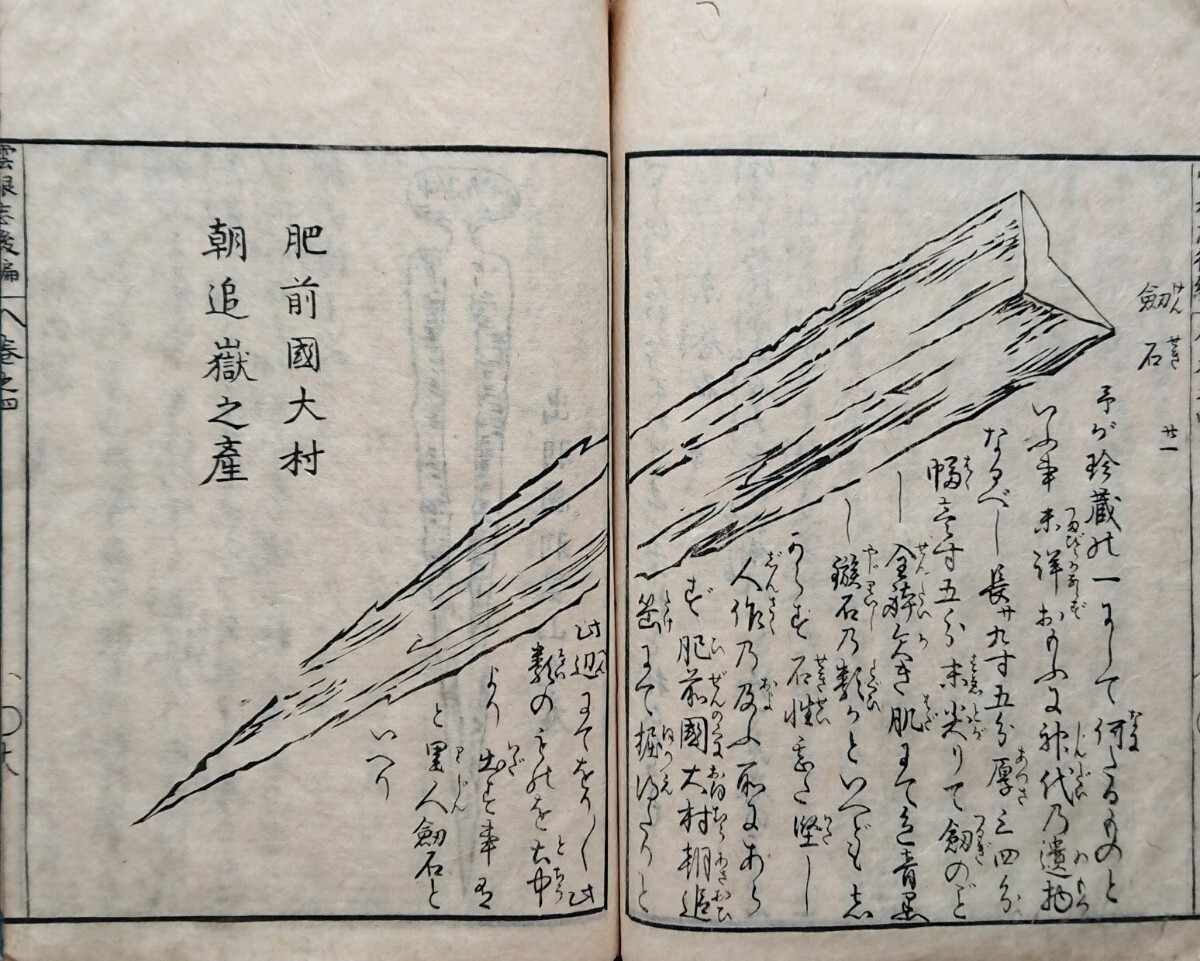 劔石 廿一
予が珍蔵の一にして何たるものと
いふ事未詳おもふに神代乃遺物
なるべし長サ九寸五分厚三四分
幅壱寸五分末尖りて劔のごと
し全体 肌にて色青黒
し鏃石乃類かといへども志
からず石性甚だ堅し
人作乃及ふ所にあら
ず肥前國大村朝追
嵓にて掘得たりと
此辺にてをり〳〵此
類のものを土中
より出す事有
と里人劔石と
いへり
肥前國大村
朝追嶽之産
雲根志後編 巻之四